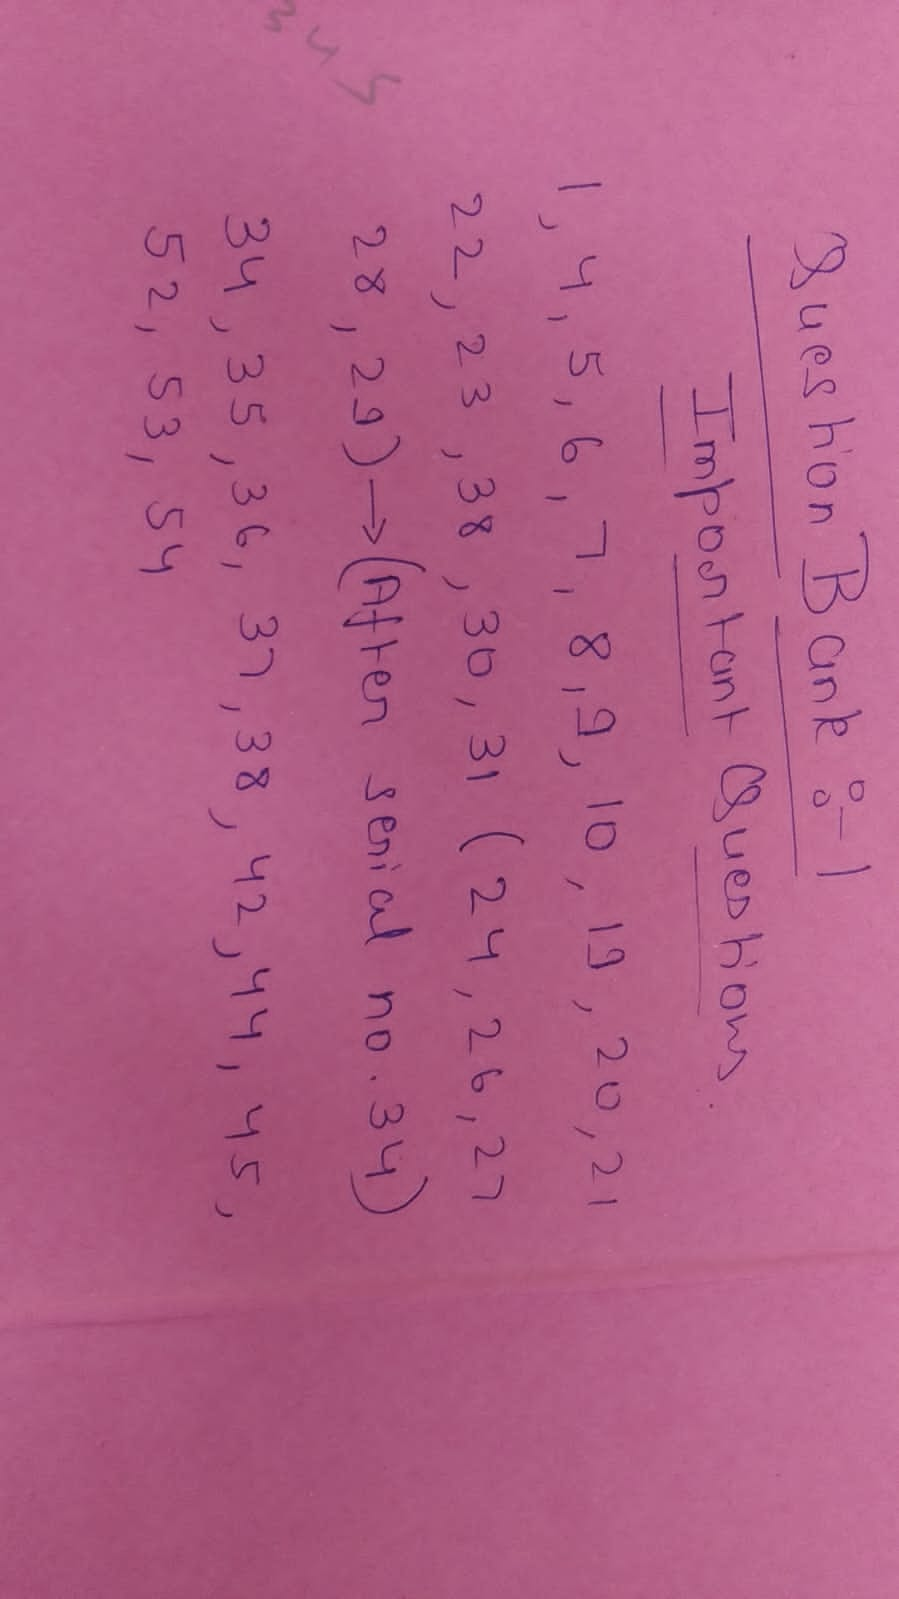 Question Bank :-1
Important Questions.
1, 4, 5, 6, 7, 8, 9, 10, 19, 20, 21
22, 23, 38, 30, 31 (24, 26, 27
28, 29) → (After serial no. 34)
34, 35, 36, 37, 38, 42, 44, 45,
52, 53, 54